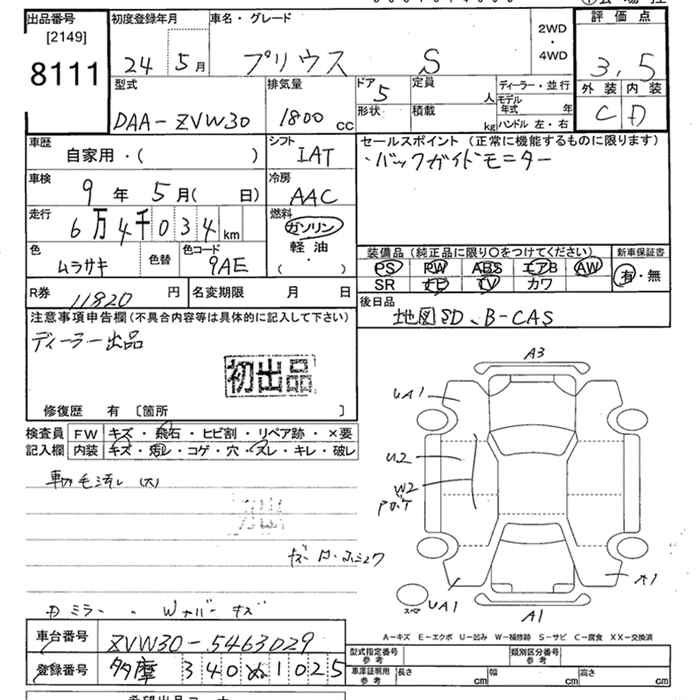 出品番号 初度登録年月 車名・グレード 2WD・4WD 評価点
[2149]
8111 24 5月 プリウス S 3.5
型式 排気量 ドア 定員 人 ディーラー・並行 外装 内装
DAA-ZVW30 1800 cc 5 形状 積載 kg モデル年式 年 ハンドル 左・右 C D
車歴 シフト セールスポイント (正常に機能するものに限ります)
自家用・( ) IAT ・バックガイドモニター
車検 冷房
9年 5月( 日) AAC
走行 燃料
6万4千034km ガソリン
軽油
・( )
色 色替 色コード 装備品 (純正品に限り○をつけてください) 新車保証書
ムラサキ 9AE PS PW ABS エアB AW 有・無
SR ナビ TV カワ
R券 11820 円 名変期限 月 日 後日品
地図SD、B-CAS
注意事項申告欄 (不具合内容等は具体的に記入して下さい)
ディーラー出品
初出品
修復歴 有 〔箇所 〕
検査員 FW キズ・飛石・ヒビ割・リペア跡・×要
記入欄 内装 キズ・汚レ・コゲ・穴・スレ・キレ・破レ
A3
UA1
U2
W2
A1
スペア UA1
A1
A-キズ E-エクボ U-凹み W-補修跡 S-サビ C-腐食 XX-交換済
車台番号 ZVW30-5463029 型式指定番号 参考 類別区分番号 参考
登録番号 多摩 340 ぬ 1025 車庫証明用 参考 長さ cm 幅 cm 高さ cm